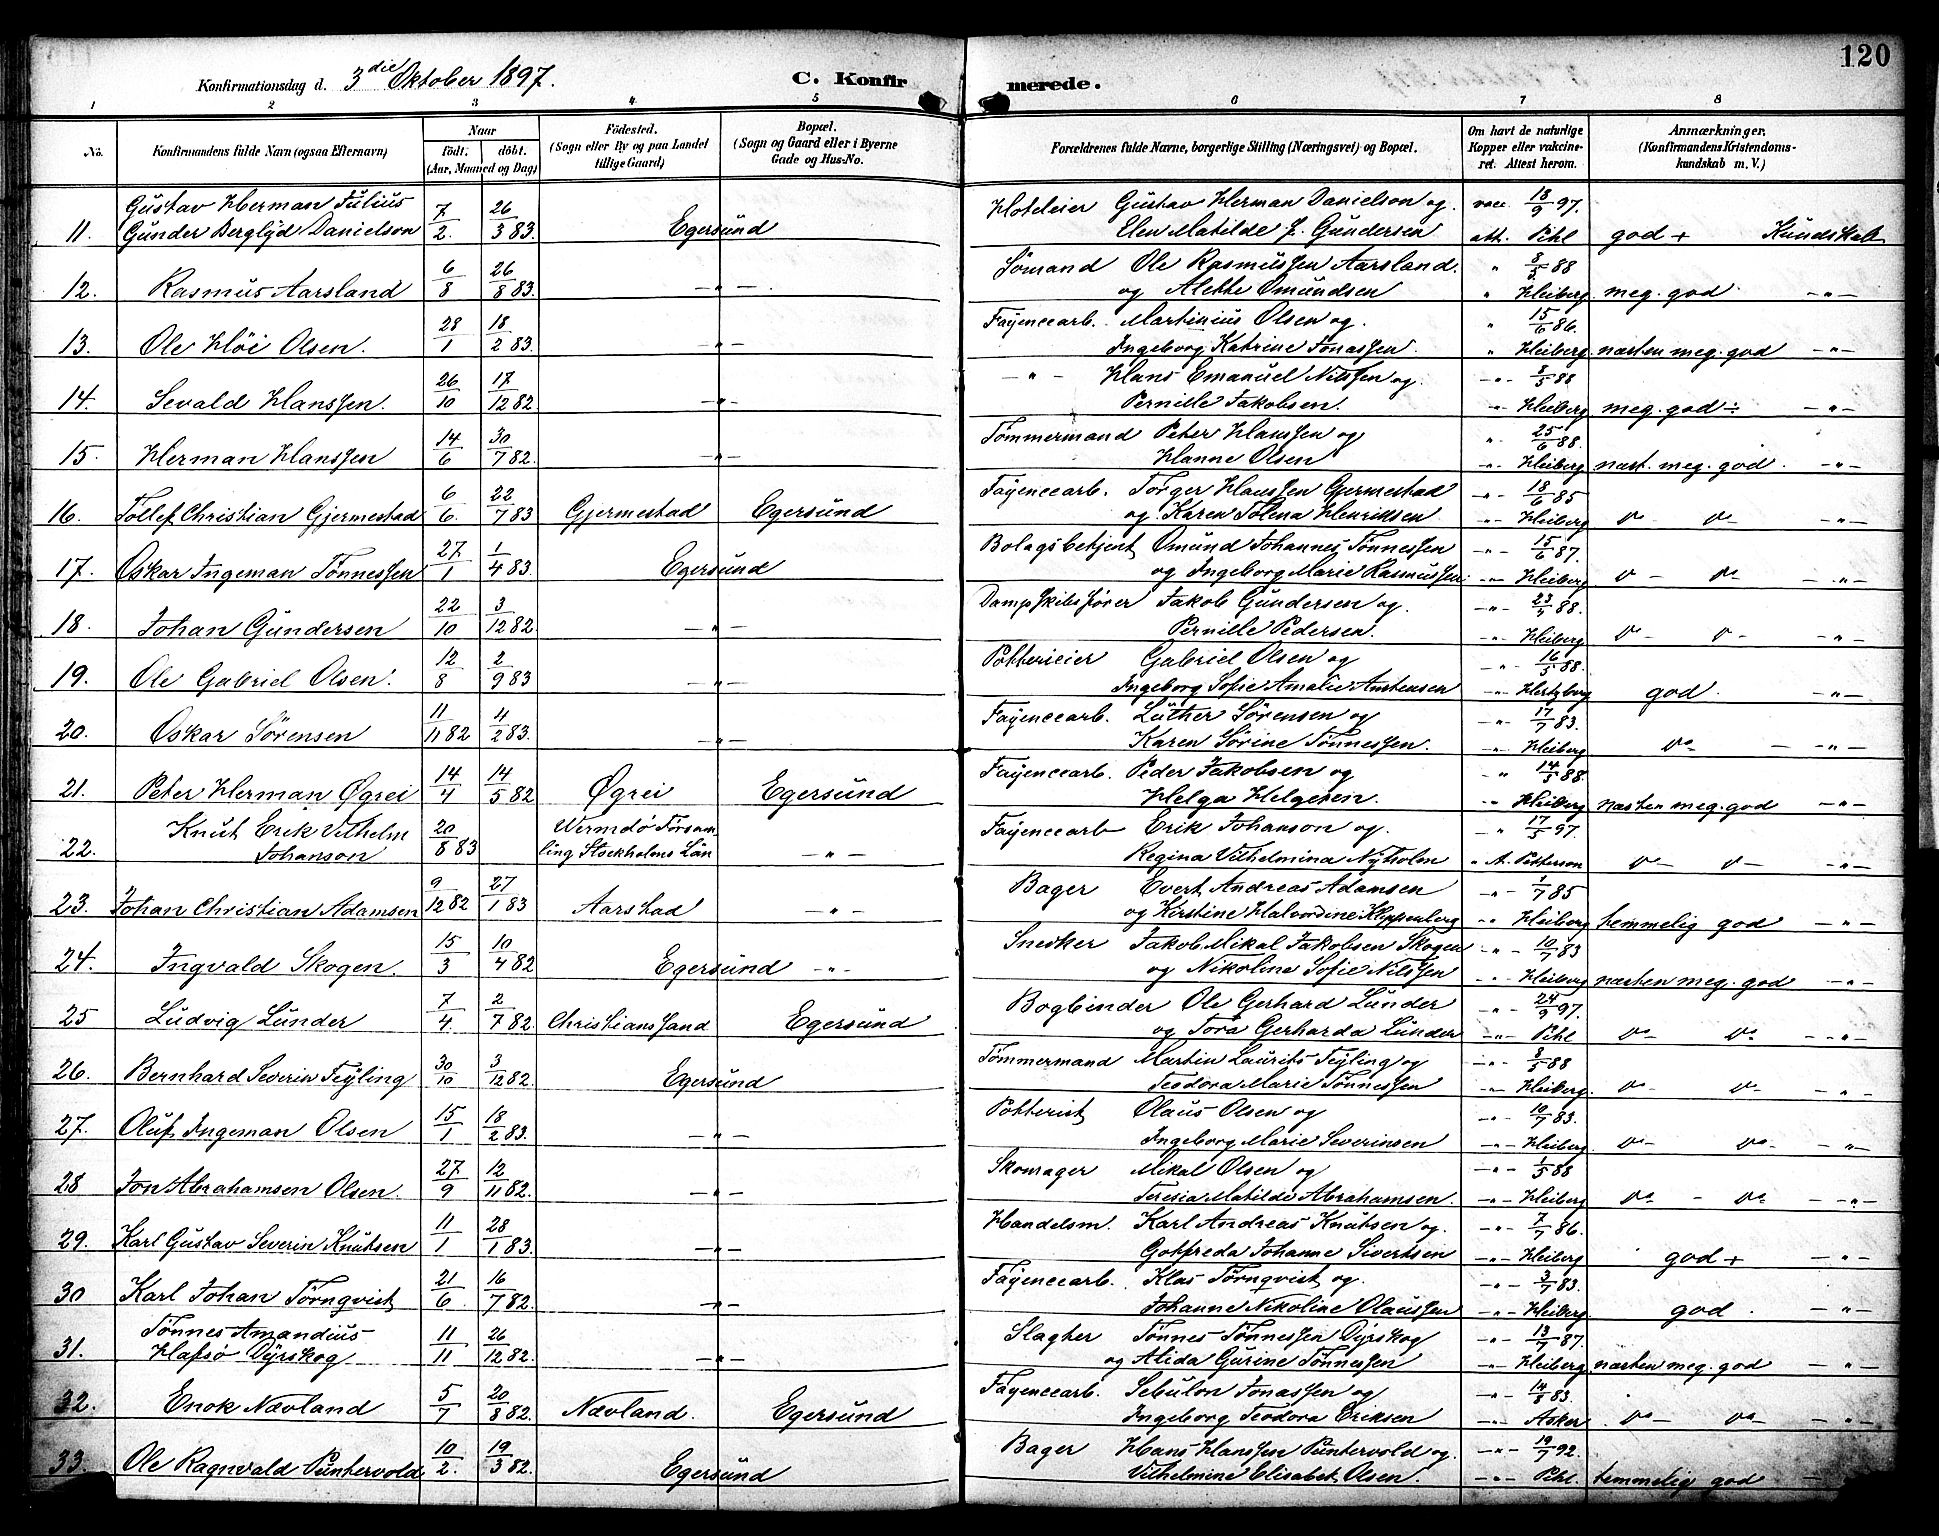 120
Konfirmationsdag d. 3die Oktober 1897. C. Konfirmerede.
1 2 3 4 5 6 7 8
No. Konfirmandens fulde Navn (ogsaa Efternavn) Naar födt. döbt. (Aar, Maaned og Dag) Födested. (Sogn eller By og paa Landet tillige Gaard) Bopæl. (Sogn og Gaard eller i Byerne Gade og Hus-No. Forældrenes fulde Navne, borgerlige Stilling (Næringsvei) og Bopæl. Om havt de naturlige Kopper eller vakcineret. Attest herom. Anmærkninger. (Konfirmandens Kristendomskundskab m. V.)
Gustav Herman Julius 7 26 Hoteleier Gustav Herman Danielson og vacc. 18/9 97.
11. Gunder Berglyd Danielson 2. 3 83. Egersund Elen Matilde f. Gundersen att. Pihl god + Kundskab
6 26 Sömand Ole Rasmussen Aarsland. " 8/5 88
12. Rasmus Aarsland 8 8 83. —"— og Alette Omundsen " Heiberg meg. god —"—
28 18 Fayencearb. Martinius Olsen og " 15/6 86.
13. Ole Höi Olsen. 1 2 83. —"— Ingeborg Katrine Jonassen. " Heiberg næsten meg. god —"—
26 17 —"— Hans Emanuel Nilssen og —"— 8/5 88
14. Sevald Hanssen. 10 12 82 —"— Pernille Jakobsen. —"— Heiberg meg. god ÷ —"—
14 30 Tömmermand Peter Hanssen og " 25/6 88.
15. Herman Hanssen 6 7 82. —"— Hanne Olsen —"— Heiberg næst. meg. god. —"—
6 22 Fayencearb. Torger Hanssen Gjermestad —"— 18/6 85
16. Tollef Christian Gjermestad 6. 7 83 Gjermestad Egersund og Karen Tolena Henriksen —"— Heiberg do do —"—
27 1 Bolagsbetjent Omund Johannes Tönnessen —"— 15/6 87.
17. Oskar Ingeman Tönnessen 1 4 83. Egersund og Ingeborg Marie Rasmussen —"— Heiberg do do —"—
22 3 Dampskibsförer Jakob Gundersen og —"— 88.
18. Johan Gundersen 10 12 82 —"— Pernille Pedersen. —"— Heiberg do do —"—
12 2 Potterieier Gabriel Olsen og —"— 16/5 88.
19. Ole Gabriel Olsen. 8 9 83 —"— Ingeborg Sofie Amalie Austensen —"— Hertzberg god. —"—
11 4 Fayencearb. Luther Sörensen og —"— 17/7 83.
20. Oskar Sörensen 11 82 2 83. —"— Karen Sörine Tönnessen. —"— Heiberg do —"—
14 14 Fayencearb. Peder Jakobsen og " 14/5 88.
21. Peter Herman Øgrei 4 5 82 Øgrei Egersund Helga Helgesen. —"— Heiberg næsten meg. god —"—
Knut Erik Vilhelm 20 Wermdö Forsam- Fayencearb Erik Johanson og " 17/5 97.
22. Johanson 8 83 ling Stockholms Län —"— Regina Vilhelmina Nyholm " A. Petterson do do —"—
9 27 Bager Evert Andreas Adamsen —"— 1/7 85
23. Johan Christian Adamsen 12 82 1 83 Aarstad —"— og Kirstine Halvordine Kloppenborg —"— Heiberg temmelig god —"—
15 10 Snedker Jakob Mikal Jakobsen Skogen —"— 10/7 83
24. Ingvald Skogen. 3 4 82 Egersund —"— og Nikoline Sofie Nilssen —"— Heiberg næsten meg. god —"—
7 2 Bogbinder Ole Gerhard Lunder —"— 24/9 97.
25 Ludvig Lunder 4. 7 82. Christianssand Egersund og Tora Gerharda Lunder —"— Pihl do do —"—
30 3 Tömmermand Martin Laurits Feyling og —"— 8/5 88
26. Bernhard Severin Feyling 10 12 82. Egersund Teodora Marie Tönnessen —"— Heiberg. do do —"—
15 18 Potterist Olaus Olsen og —"— 10/7 83.
27. Oluf Ingeman Olsen 1 2 83. —"— Ingeborg Marie Severinsen —"— Heiberg do do —"—
27 12 Skomager Mikal Olsen og —"— 1/5 88
28 Jon Abrahamsen Olsen. 9 11 82. —"— Teresia Matilde Abrahamsen. —"— Heiberg do do —"—
11 28 Handelsm. Karl Andreas Knutsen og —"— 7/7 86.
29. Karl Gustav Severin Knutsen 1 1 83. —"— Gotfreda Johanne Sivertsen —"— Heiberg god + —"—
21 16 Fayencearb. Klas Törnqvist og —"— 3/7 83.
30 Karl Johan Törnqvist 6. 7 82. —"— Johanne Nikoline Olaussen —"— Heiberg god. —"—
Tönnes Amandius 11 26 Slagter Tönnes Tönnessen Dyrskog —"— 13/7 87.
31. Hafsö Dyrskog 11 12 82. —"— og Alida Gurine Tönnessen —"— Heiberg næsten meg. god —"—
5 20 Fayencearb. Sebulon Jonassen og —"— 14/8 83.
32. Enok Nævland 7 8 82. Nævland. Egersund Ingeborg Teodora Eriksen —"— Asker do do —"—
10 19 Bager Hans Hanssen Puntervold og —"— 19/7 92.
33. Ole Ragnvald Puntervold 2. 3 82. Egersund Vilhelmine Elisabet Olsen. —"— Pihl. temmelig god —